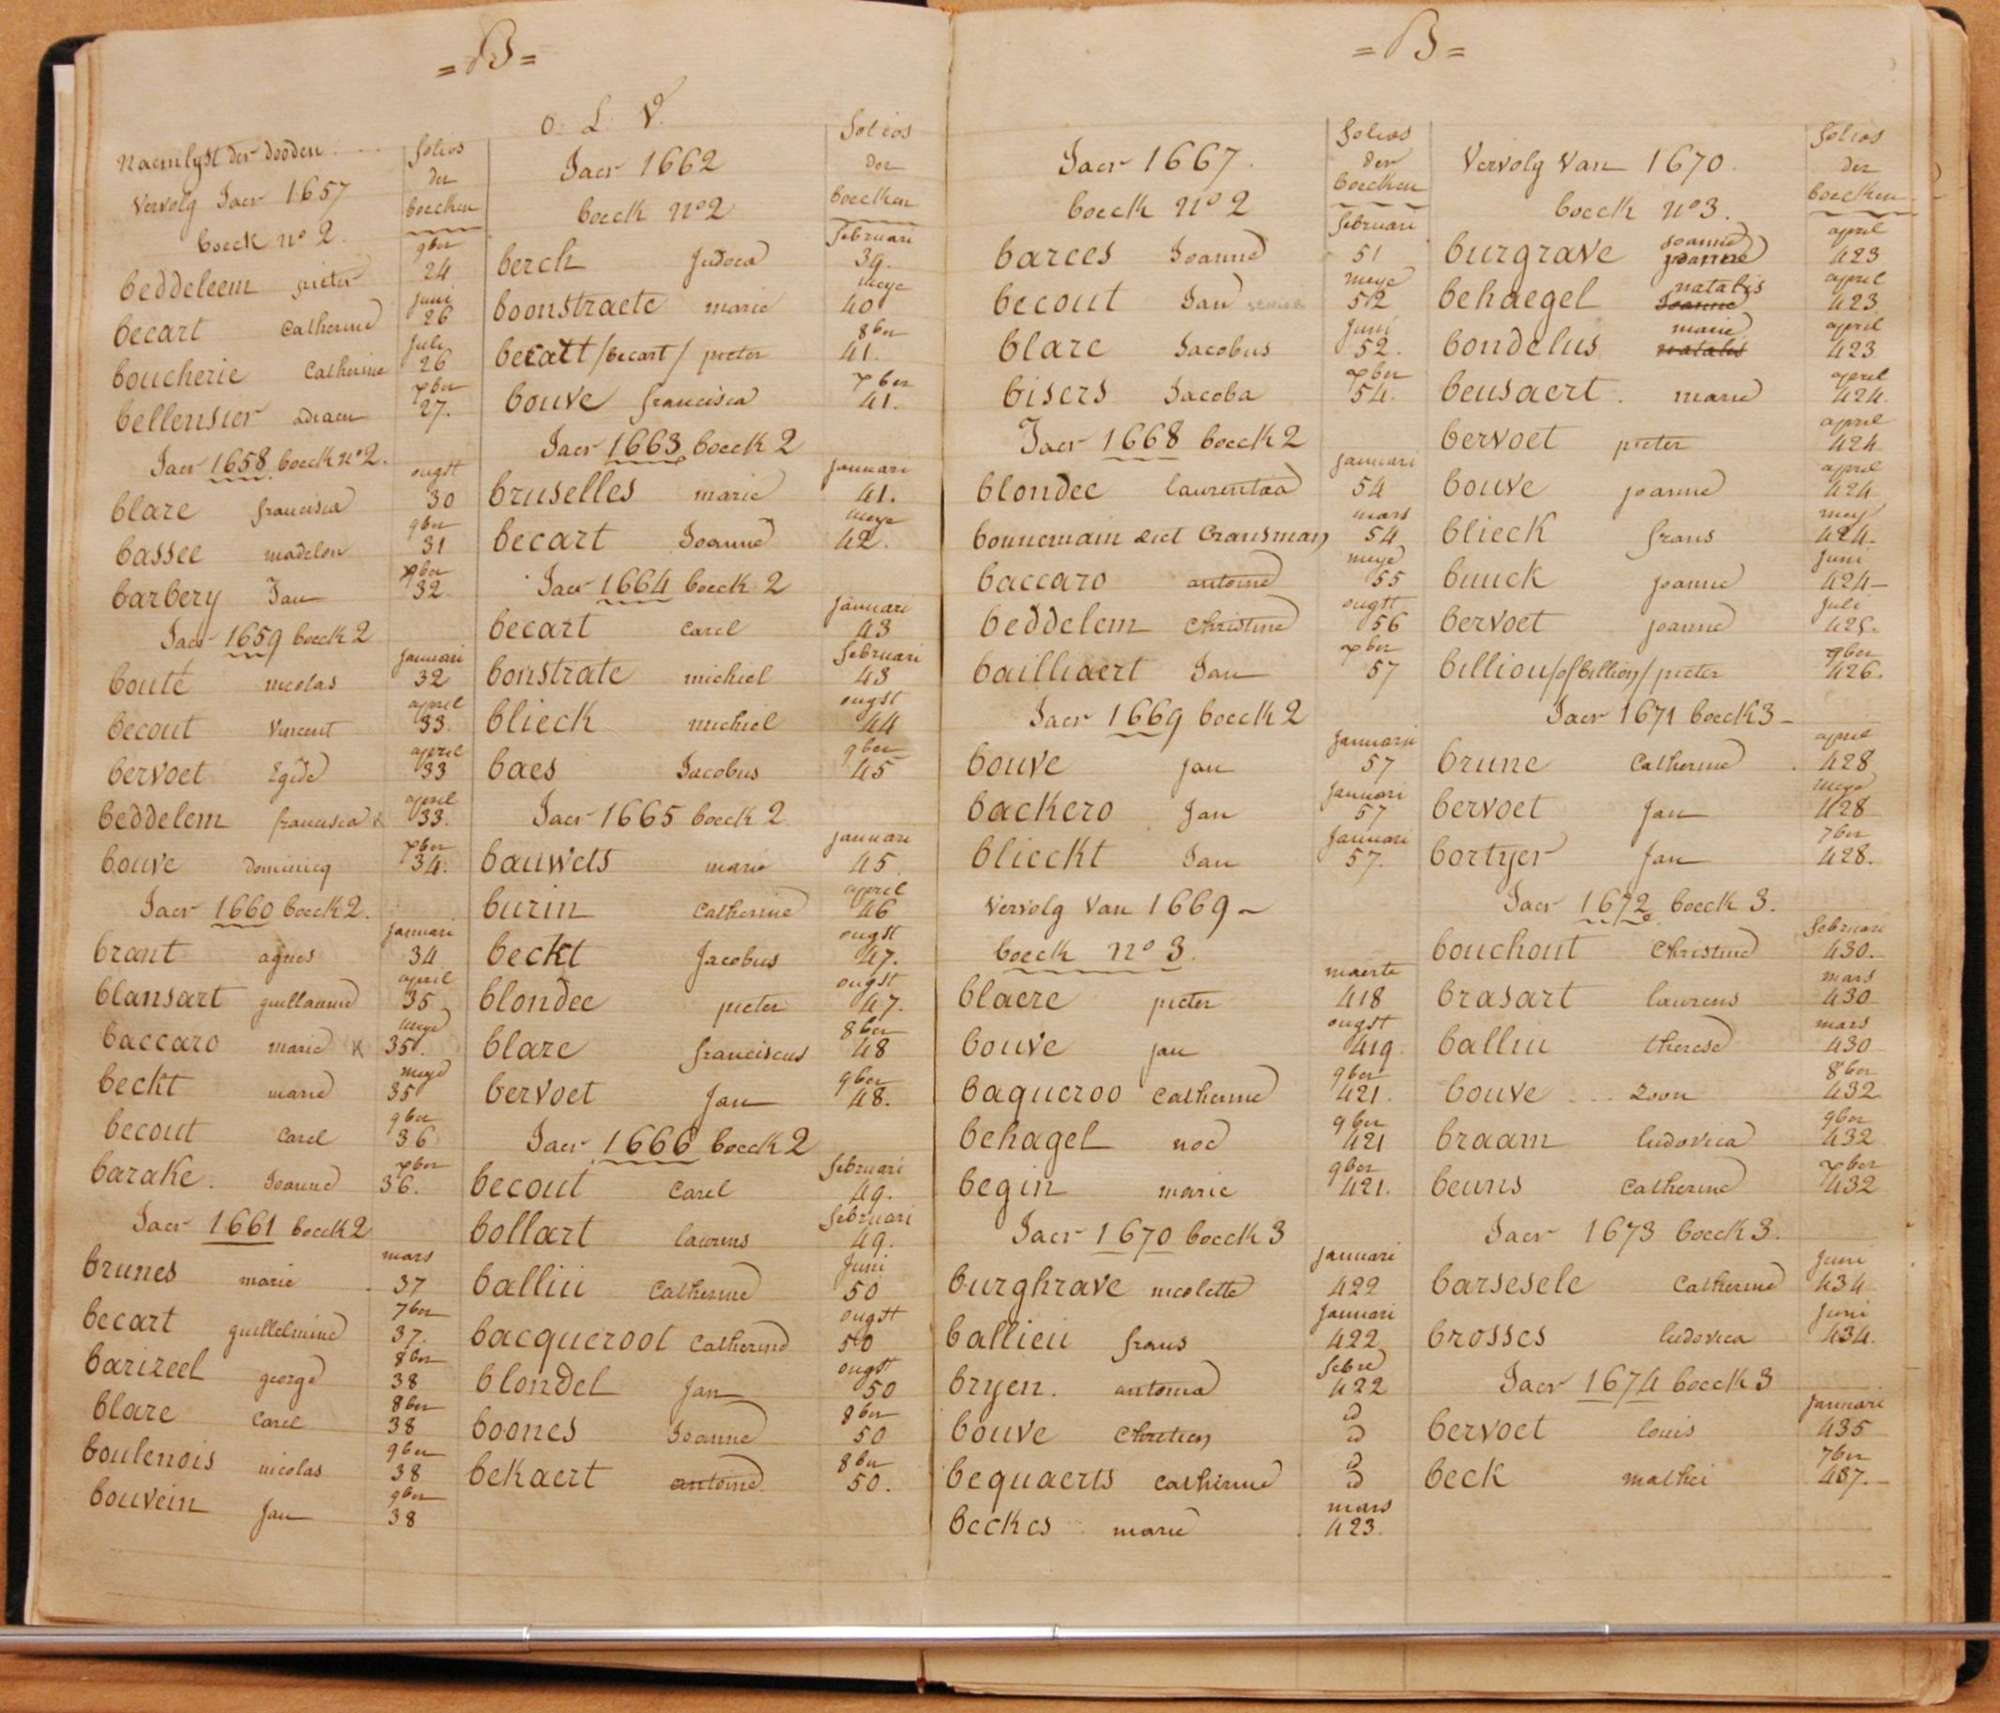 = B =
O. L. V.
Naemlyst der dooden
folios
der
boecken
Vervolg Jaer 1657
boeck no 2.
beddeleem pieter 9ber 24
becart Catherine juni 26
boucherie Catherine july 26
bellensier adriaen xber 27.
Jaer 1658 boeck no 2.
blare francisca ougst 30
bassee madelen 9ber 31
barbery Jan xber 32
Jaer 1659 boeck 2
bouté nicolas januari 32
becout Vincent april 33.
bervoet Egide april 33
beddelem francisca april 33.
bouve Dominicq xber 34.
Jaer 1660 boeck 2.
brant agnes januari 34
blansart guillaume april 35
baccaro marie x meye 35.
beckt marie meye 35
becout Carel 9ber 36
barake. Joanne xber 36.
Jaer 1661 boeck 2
brunes marie mars 37
becart guillelmine 7ber 37.
barizeel george 8ber 38
blare Carel 8ber 38
boulenois nicolas 9ber 38
bouvein Jan 9ber 38
Jaer 1662
boeck no 2
folios
der
boecken
berch Judoca februari 39.
boonstraete marie meye 40
becatt /becart/ pieter 8ber 41.
bouve francisca xber 41.
Jaer 1663 boeck 2
bruselles marie januari 41.
becart Joanne meye 42.
Jaer 1664 boeck 2
becart Carel januari 43
bonstrate michiel februari 43
blieck michiel ougst 44
baes Jacobus 9ber 45
Jaer 1665 boeck 2
bauwets marie januari 45
burin Catherine april 46
beckt Jacobus ougst 47.
blondee pieter ougst 47.
blare franciscus 8ber 48
bervoet Jan 9ber 48.
Jaer 1666 boeck 2
becout Carel februari 49.
bollart laurens februari 49.
balliu Catherine Juni 50
bacqueroot Catherine ougst 50
blondel Jan ougst 50
boones Joanne 8ber 50
bekaert antoine 8ber 50.
= B =
Jaer 1667.
boeck no 2
folios
der
boecken
barees Joanne februari 51
becout Jan meye 52
blare Jacobus Juni 52.
bisers Jacoba xber 54.
Jaer 1668 boeck 2
blondee januari 54
bonnemain dict Cransman mars 54
baccaro antoine meye 55
beddelem Christine ougst 56
bailliaert Jan xber 57
Jaer 1669 boeck 2
bouve jan Januari 57
backero Jan Januari 57
blieckt Jan Januari 57.
Vervolg Van 1669
boeck no 3.
blaere pieter maerte 418
bouve jan ougst 419
baqueroo Catherine 9ber 421.
behagel noe 9ber 421
begin marie 9ber 421.
Jaer 1670 boeck 3
burghrave nicolette januari 422
ballieu frans Januari 422
bryen. antonia febre 422
bouve Chretien id id
bequaerts Catherine id id
beckes marie mars 423.
Vervolg Van 1670
boeck no 3.
folios
der
boecken
burgrave joanne Joanne april 423
behaegel natalis Joanne april 423
bondelus marie natalis april 423
beusaert. marie april 424
bervoet pieter april 424
bouve joanne april 424
blieck frans mey 424.
buuck joanne Juni 424
bervoet joanne Juli 425.
billiou /of billion/ pieter 9ber 426.
Jaer 1671 boeck 3
brune Catherine april 428
bervoet Jan meye 428
bortyer Jan 7ber 428.
Jaer 1672 boeck 3.
bouchout Christine februari 430.
brasart laurens mars 430
balliu therese mars 430
bouve ... Zoon 8ber 432
braam ludovica 9ber 432
beuns Catherine xber 432
Jaer 1673 boeck 3.
barsesele Catherine Juni 434
brosses ludovica Juni 434.
Jaer 1674 boeck 3
bervoet louis januari 435
beck mathei 7ber 437.